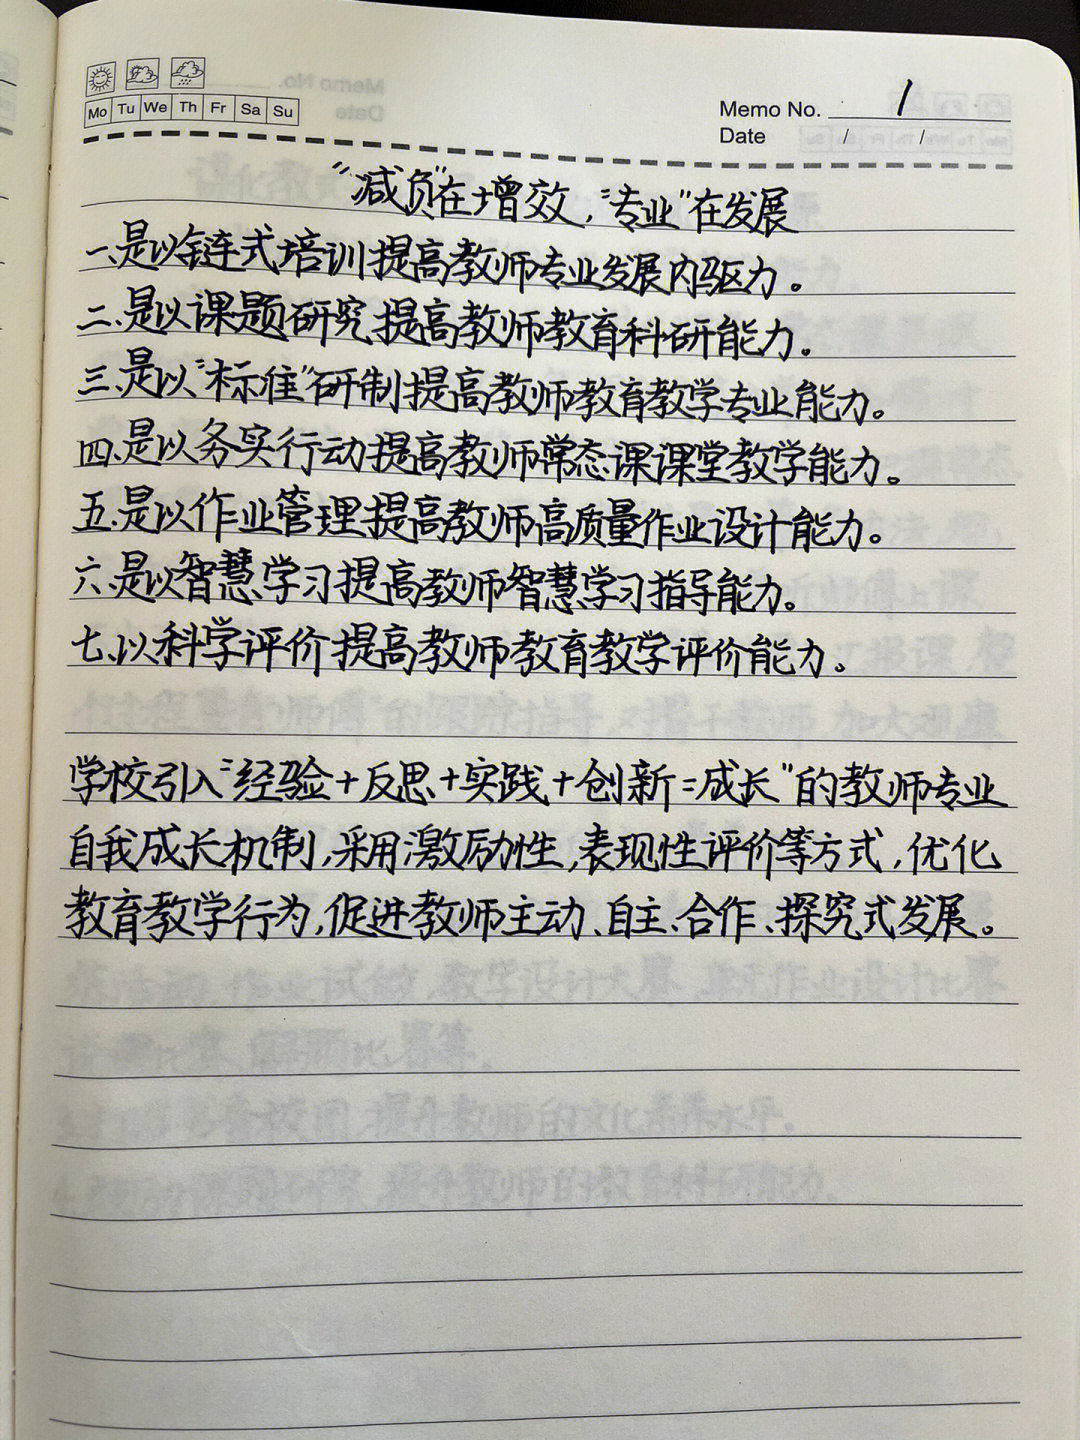 Mo Tu We Th Fr Sa Su
Memo No. 1
Date / /
“减负”在增效，“专业”在发展
一、是以链式培训提高教师专业发展内驱力。
二、是以课题研究提高教师教育科研能力。
三、是以“标准”研制提高教师教育教学专业能力。
四、是以务实行动提高教师常态课课堂教学能力。
五、是以作业管理提高教师高质量作业设计能力。
六、是以智慧学习提高教师智慧学习指导能力。
七、以科学评价提高教师教育教学评价能力。
学校引入“经验+反思+实践+创新=成长”的教师专业
自我成长机制，采用激励性，表现性评价等方式，优化
教育教学行为，促进教师主动、自主、合作、探究式发展。